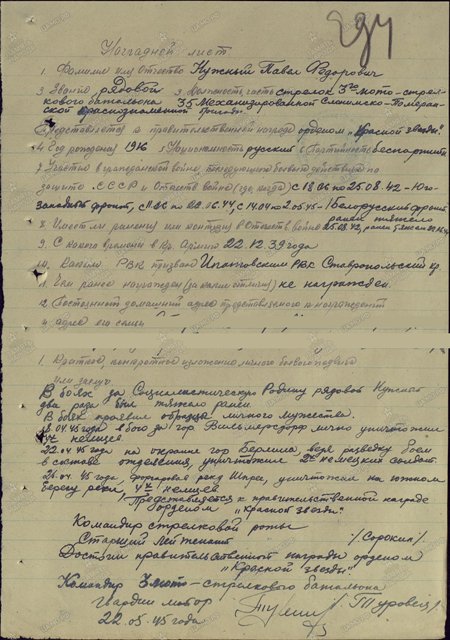 Наградной лист
1. Фамилия имя Отчество Нужный Павел Федорович
3 Звание рядовой 2 Должность часть стрелок 3го мото-стрел-
кового батальона 35 Механизированной Слонимско-Померан-
ской Краснознаменной бригады
Представляется к правительственной награде орденом "Красной звезды"
4 Год рождения 1916 5 Национальность русский 6 Партийность беспартийн
7 Участие в гражданской войне, последующих боевых действиях по
защите СССР и Отечеств войне (где когда) с 18.06 по 25.08.42 - Юго-
западный фронт, с по 06.44, с 14.04 по 2.05.45 - 1 Белорусский фронт
8. Имеет ли ранения или контузии в Отечеств войне ранен тяжело 25.08.42, ранен
9. С какого времени в Кр. Армии 22.12.39 года
10. Каким РВК призван Ипатовским РВК Ставропольский кр.
11. Чем ранее награжден (за какие отличия) не награжден.
12. Постоянный домашний адрес представляемого к награждению
и адрес его семьи
1. Краткое, конкретное изложение личного боевого подвига
или заслуг
В боях за Социалистическую Родину рядовой Нужный
два раза был тяжело ранен.
В боях проявил образцы личного мужества.
04.45 года в бою за гор Вильмерсдорф лично уничтожил
немцев.
22.04.45 года на окраине гор Берлина, ведя разведку боем
в составе отделения, уничтожил 2х немецких солдат.
04.45 года, форсировав реку Шпрее, уничтожил на южном
берегу реки, 4х немцев.
Представляется к правительственной награде
орденом "Красной звезды".
Командир стрелковой роты
Старший лейтенант /Сорокин/
Достоин правительственной награды орденом
"Красной звезды"
Командир 3 мото-стрелкового батальона
гвардии майор /Туровец/
22.05.45 года